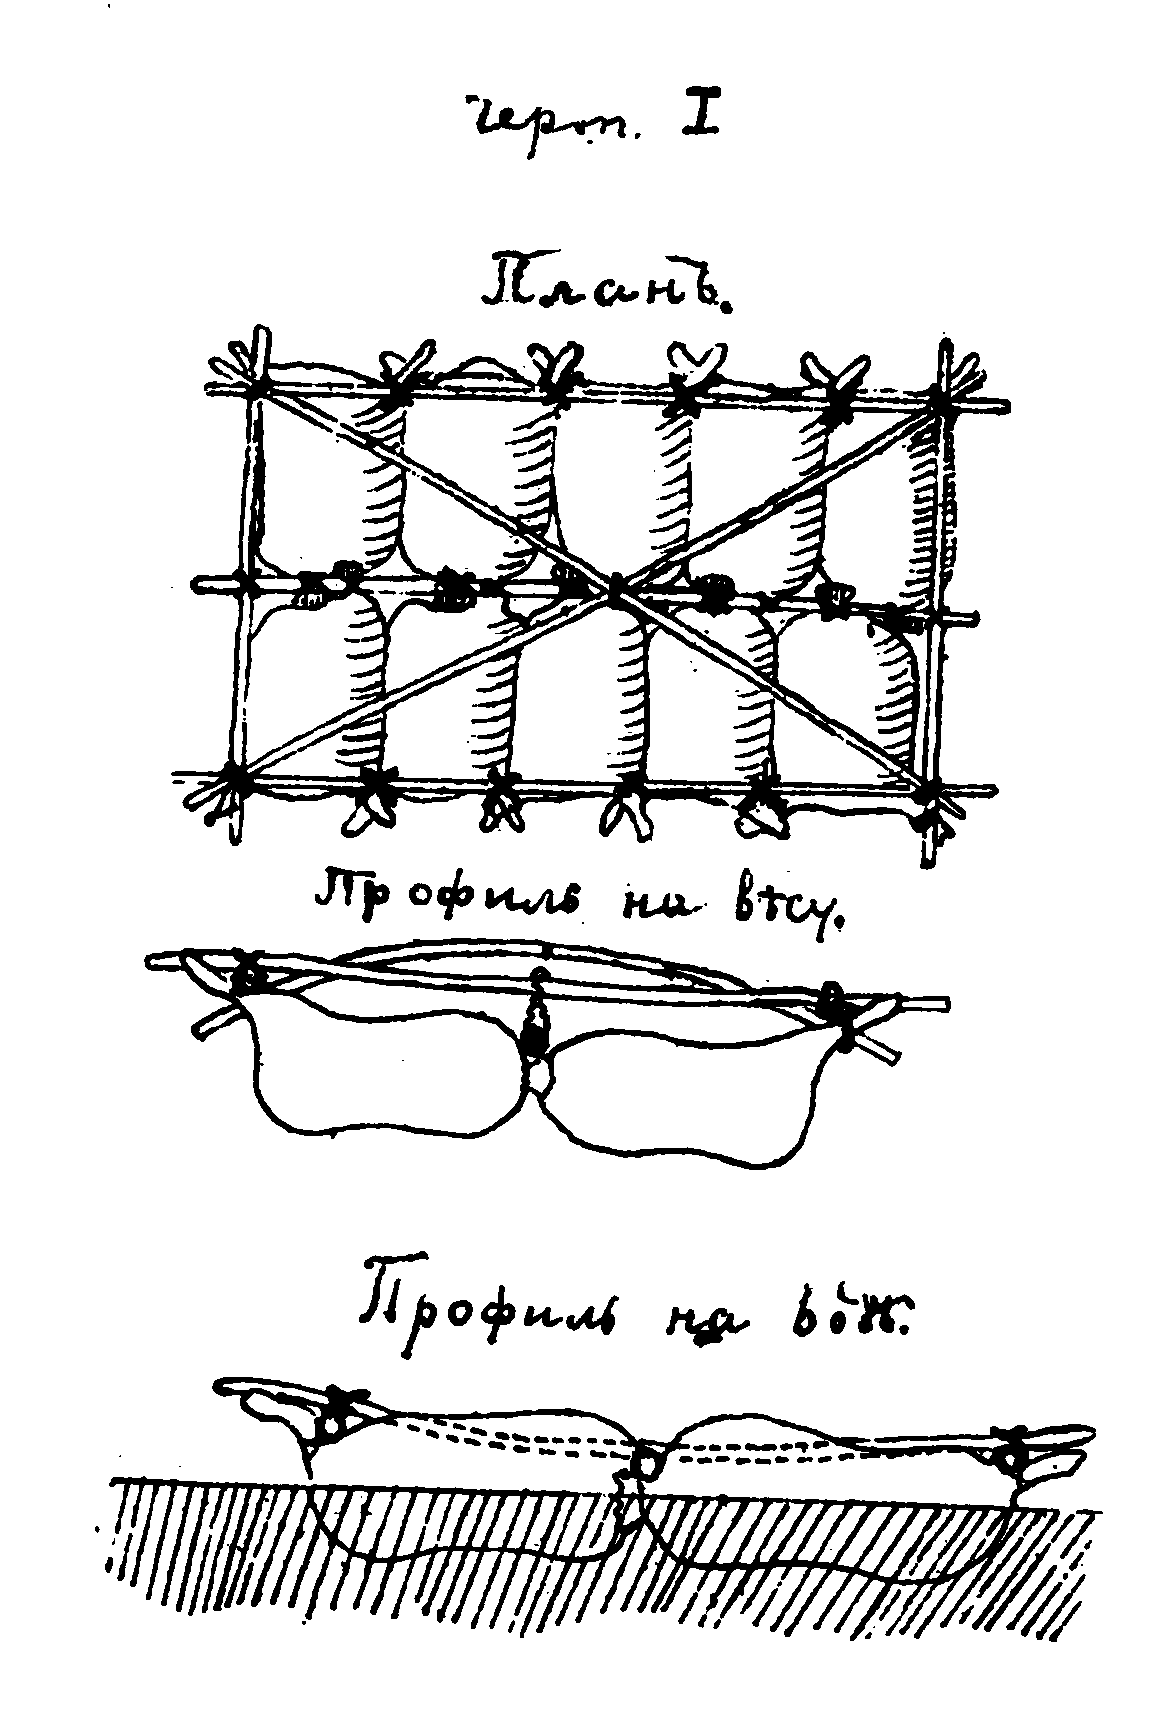 черт. I
Планъ.
Профиль на вѣсу.
Профиль на вод.